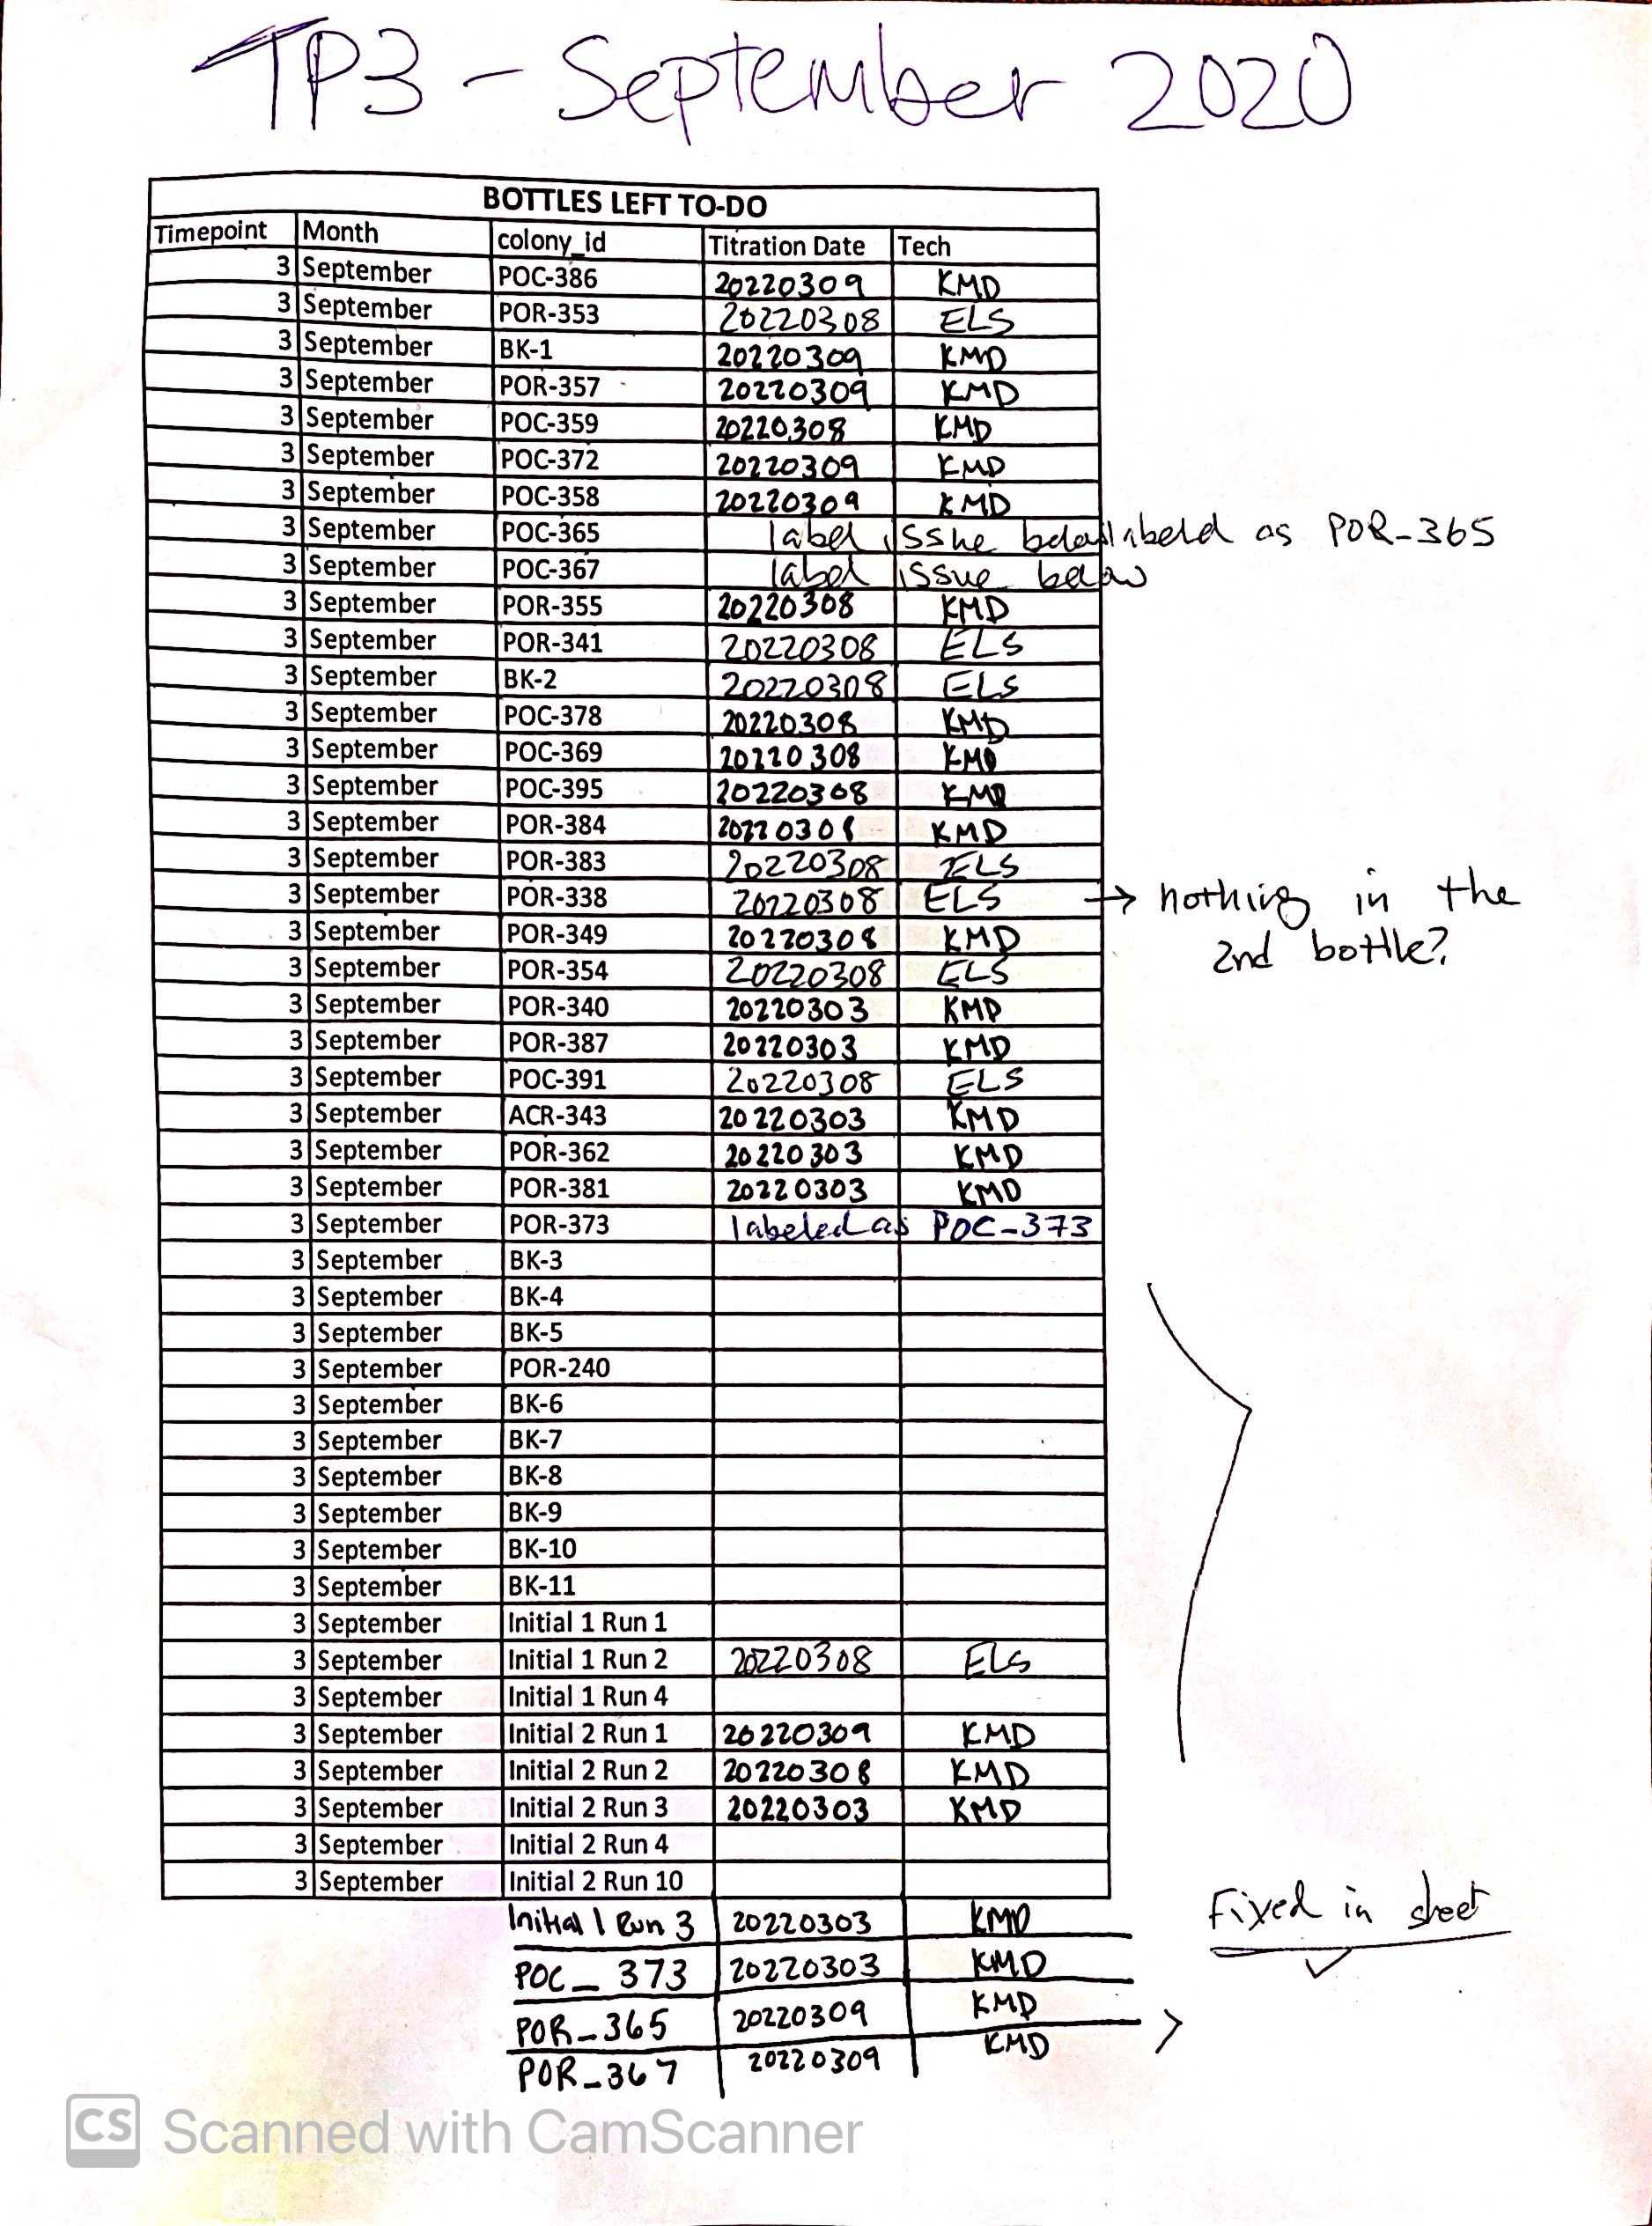 TP3 - September 2020
BOTTLES LEFT TO-DO
Timepoint Month colony_id Titration Date Tech
3 September POC-386 20220309 KMD
3 September POR-353 20220308 ELS
3 September BK-1 20220309 KMD
3 September POR-357 20220309 KMD
3 September POC-359 20220308 KMD
3 September POC-372 20220309 KMD
3 September POC-358 20220309 KMD
3 September POC-365 label issue below labeld as POR-365
3 September POC-367 label issue below
3 September POR-355 20220308 KMD
3 September POR-341 20220308 ELS
3 September BK-2 20220308 ELS
3 September POC-378 20220308 KMD
3 September POC-369 20220308 KMD
3 September POC-395 20220308 KMD
3 September POR-384 20220308 KMD
3 September POR-383 20220308 ELS
3 September POR-338 20220308 ELS → nothing in the
3 September POR-349 20220308 KMD 2nd bottle?
3 September POR-354 20220308 ELS
3 September POR-340 20220303 KMD
3 September POR-387 20220303 KMD
3 September POC-391 20220308 ELS
3 September ACR-343 20220303 KMD
3 September POR-362 20220303 KMD
3 September POR-381 20220303 KMD
3 September POR-373 labeled as POC-373
3 September BK-3
3 September BK-4
3 September BK-5
3 September POR-240
3 September BK-6
3 September BK-7
3 September BK-8
3 September BK-9
3 September BK-10
3 September BK-11
3 September Initial 1 Run 1
3 September Initial 1 Run 2 20220308 ELS
3 September Initial 1 Run 4
3 September Initial 2 Run 1 20220309 KMD
3 September Initial 2 Run 2 20220308 KMD
3 September Initial 2 Run 3 20220303 KMD
3 September Initial 2 Run 4
3 September Initial 2 Run 10
Initial 1 Run 3 20220303 KMD Fixed in sheet ✓
POC_373 20220303 KMD
POR_365 20220309 KMD
POR_367 20220309 KMD
CS Scanned with CamScanner